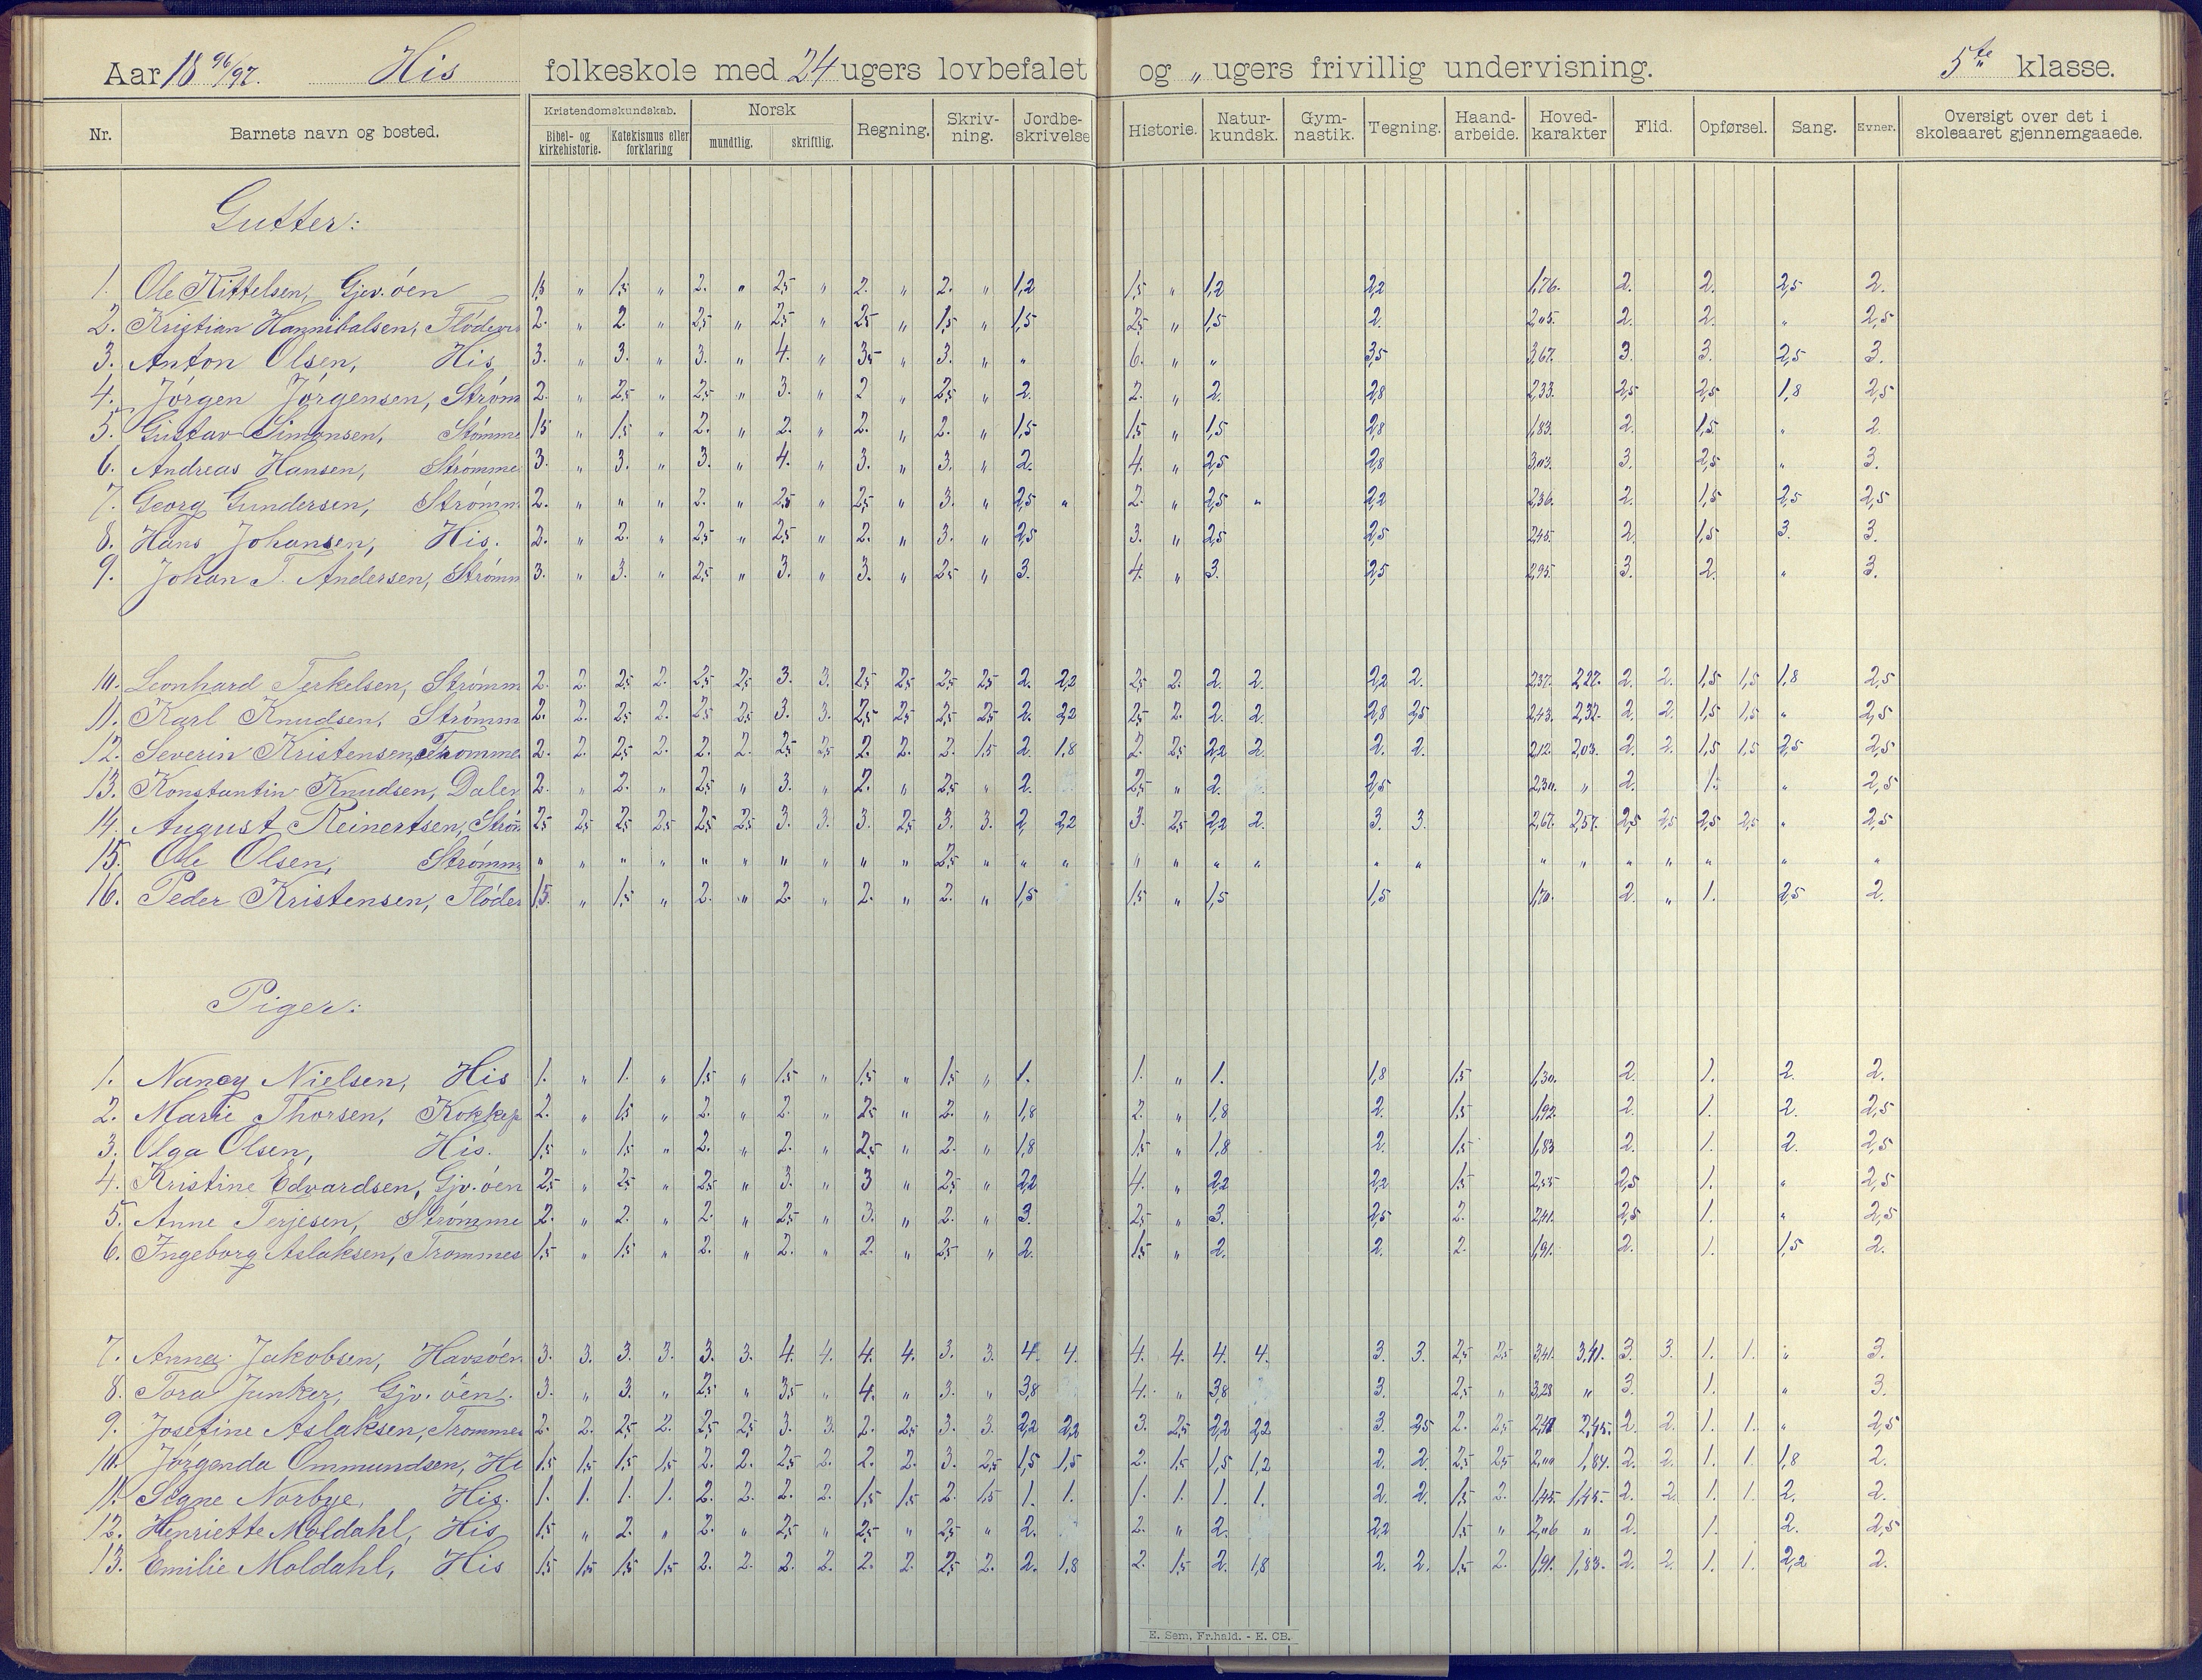 Aar 18 96/97. His folkeskole med 24 ugers lovbefalet og „ ugers frivillig undervisning. 5te klasse.
Nr. Barnets navn og bosted. Kristendomskundskab. Bibel- og kirkehistorie. Katekismus eller forklaring Norsk mundtlig. skriftlig. Regning. Skriv-ning. Jordbe-skrivelse Historie. Natur-kundsk. Gym-nastik. Tegning. Haand-arbeide. Hoved-karakter Flid. Opførsel. Sang. Evner. Oversigt over det i skoleaaret gjennemgaaede.
Gutter:
1. Ole Kittelsen, Gjev.öen 1,5 „ 1,5 „ 2. „ 2,5 „ 2. „ 2. „ 1,2 1,5 „ 1,2 2,2 1,76. 2. 2. 2,5 2.
2. Kristian Hannibalsen, 2. „ 2. „ 2,5 „ 2,5 „ 2,5 „ 1,5 „ 1,5 2,5 „ 1,5 2. 2,05. 2. 2. „ 2,5
3. Anton Olsen, His 3. „ 3. „ 3. „ 4. „ 3,5 „ 3. „ „ 6. „ „ 3,5 3,67. 3. 3. 2,5 3.
4. Jörgen Jörgensen, Ström 2. „ 2,5 „ 2,5 „ 3. „ 2 „ 2,5 „ 2. 2. „ 2. 2,8 2,33. 2,5 2,5 1,8 2,5
5. Gustav Simonsen, Stömme 1,5 „ 1,5 „ 2. „ 2. „ 2. „ 2. „ 1,5 1,5 „ 1,5 2,8 1,83. 2. 1,5 „ 2.
6. Andreas Hansen, Strömme 3. „ 3. „ 3. „ 4. „ 3. „ 3. „ 2. 4. „ 2,5 2,8 3,03. 3. 2,5 „ 3.
7. Georg Gundersen, Strömm 2. „ „ „ 2. „ 2,5 „ 2,5 „ 3. „ 2,5 „ 2. „ 2,5 „ 2,2 2,36. 2. 1,5 2,5 2,5
8. Hans Johansen, His. 2. „ 2. „ 2,5 „ 2,5 „ 2. „ 3. „ 2,5 3. „ 2,5 2,5 2,45. 2. 1,5 3. 3.
9. Johan T. Andersen, Strömm 3. „ 3. „ 2,5 „ 3. „ 3. „ 2,5 „ 3. 4. „ 3. 2,5 2,95. 3. 2. „ 3.
10. Leonhard Terkelsen, Strömm 2. 2. 2,5 2. 2,5 2,5 3. 3. 2,5 2,5 2,5 2,5 2. 2,2 2,5 2. 2. 2. 2,2 2. 2,37. 2,27. 2. 2. 1,5 1,5 1,8 2,5
11. Karl Knudsen, Strömm 2. 2. 2,5 2. 2,5 2,5 3. 3. 2,5 2,5 2,5 2,5 2. 2,2 2,5 2. 2. 2. 2,8 2,5 2,43. 2,32. 2. 2. 1,5 1,5 „ 2,5
12. Severin Kristensen, Tromme 2. 2. 2,5 2. 2. 2. 2,5 2,5 2. 2. 2. 1,5 2. 1,8 2. 2,5 2,2 2. 2. 2. 2,12. 2,03. 2. 2. 1,5 1,5 2,5 2,5
13. Konstantin Knudsen, Dalen 2. „ 2. „ 2,5 „ 3. „ 2. „ 2,5 „ 2. 2,5 „ 2. 2,5 2,30. „ 2. 1. „ 2,5
14. August Reinertsen, Ström 2,5 2,5 2,5 2,5 2,5 2,5 3. 3. 3. 2,5 3. 3. 2. 2,2 3. 2,5 2,2 2. 3. 3. 2,67. 2,57. 2,5 2,5 2,5 2,5 „ 2,5
15. Ole Olsen, Strömm „ „ „ „ „ „ „ „ „ „ 2,5 „ „ „ „ „ „ „ „ „ „ „ „ „ „ „ „
16. Peder Kristensen, Flöder 1,5. „ 1,5 „ 2. „ 2. „ 2. „ 2. „ 1,5 1,5 „ 1,5 1,5 1,70. 2. „ 1. 2,5 2.
Piger:
1. Nancy Nielsen, His 1. „ 1. „ 1,5 „ 1,5 „ 1,5 „ 1,5 „ 1. 1. „ 1. 1,8 1,5 1,30. 2. 1. 2. 2.
2. Marie Thorsen, Kokkep 2. „ 1,5 „ 2. „ 2. „ 2,5 „ 2. „ 1,8 2. „ 1,8 2. 1,5 1,92. 2. 1. 2. 2,5
3. Olga Olsen, His. 1,5 „ 1,5 „ 2. „ 2. „ 2,5 „ 2. „ 1,8 1,5 „ 1,8 2. 1,5 1,83 2. 1. 2. 2,5
4. Kristine Edvardsen, Gjv.öen 2,5 „ 2,5 „ 2,5 „ 3. „ 3 „ 2,5 „ 2,2 4. „ 2,2 2,2 1,5 2,55 2,5 1. „ 2,5
5. Anne Terjesen, Strömme 2. „ 2. „ 2. „ 2,5 „ 3. „ 2. „ 3. 2,5 „ 3. 2,5 2. 2,41. 2,5 1. „ 2,5
6. Ingeborg Aslaksen, Trommes 1,5 „ 1,5 „ 2. „ 2. „ 2. „ 2,5 „ 2. 1,5 „ 2. 2. 2. 1,91. 2. 1. 1,5 2.
7. Anna Jakobsen, Havsöen 3. 3. 3. 3. 3. 3. 4. 4. 4. 4. 3. 3. 4. 4. 4. 4. 4. 4. 3. 3. 2,5 2,5 3,41. 3,41. 3. 3. 1. 1. „ 3.
8. Tora Junker, Gjv. öen. 3. „ 3. „ 2,5 „ 3,5 „ 4. „ 3. „ 3,8 4. „ 3,8 3. 2,5 „ 3,28 „ 3. 1. „ 3.
9. Josefine Aslaksen, Trommes 2. 2. 2,5 2. 2,5 2,5 3. 3. 2. 2,5 3. 3. 2,2 2,2 3. 2,5 2,2 2,2 3. 2,5 2. 2,5 2,45. 2. 2. 1. 1. „ 2,5
10. Jörganda Ommundsen, Hi 1,5 1,5 1,5 1,5 2. 2. 2,5 2. 2. 2. 3. 2,5 1,5 1,5 2. 1,5 1,5 1,2 2. 2. 2,5 2,5 2,00 1,84. 2. 2. 1. 1. 1,8 2.
11. Signe Norbye, His. 1. 1. 1. 1. 2. 2. 2. 2. 1,5 1,5 2. 1,5 1. 1. 1. 1. 1. 1. 2. 2. 1,5 2. 1,45. 1,45. 2. 2. 1. 1. 2. 2.
12. Henriette Moldahl, His 1,5 „ 2. „ 2. „ 2,5 „ 2,5 „ 2,5 „ 2. 2. „ 2. 2,2 1,5 „ 2,06 „ 2. 1. 2. 2,5
13. Emilie Moldahl, His 1,5 1,5 1,5 1,5 2. 2. 2. 2. 2. 2. 2,5 2. 2. 1,8 2. 1,5 2. 1,8 2. 2. 1,5 2. 1,91. 1,83. 2. 2. 1. 1. 2,2 2.
E. Sem, Fr.hald. - E. CB.